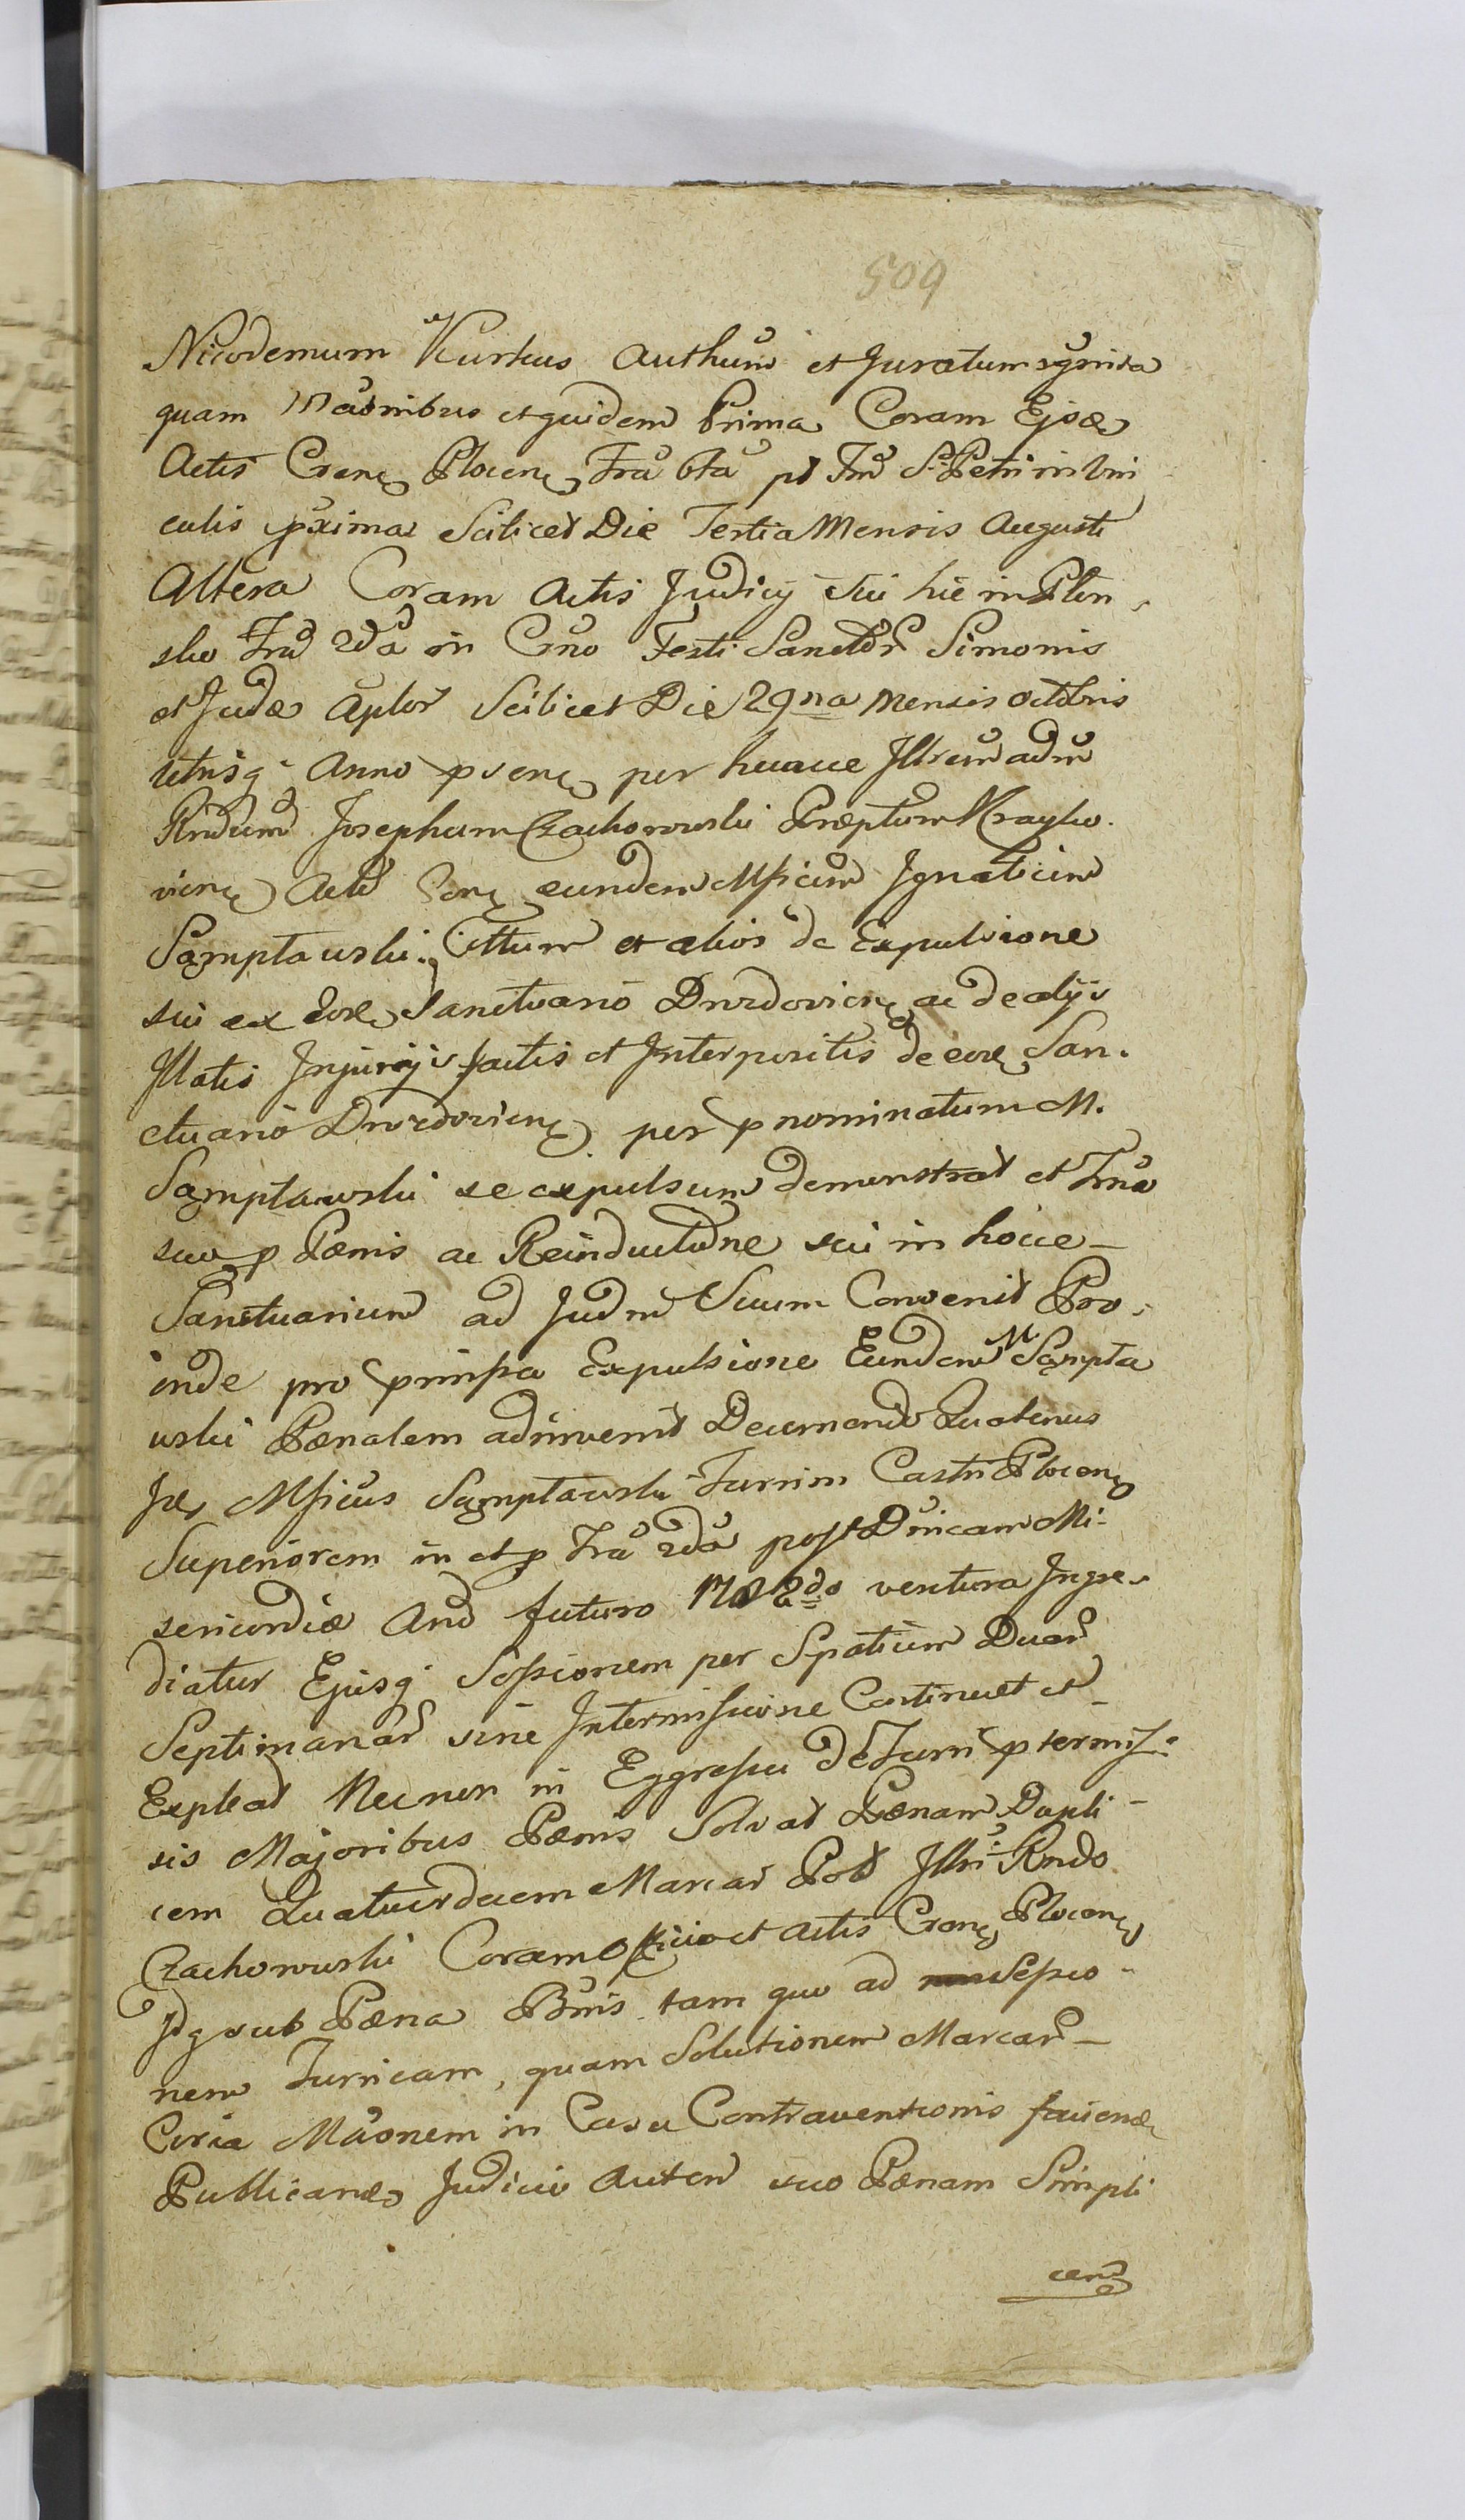 509
Nicodemum Kurkus Authum̃ et Juratum sgnita
quam Ma͠onibus et quidem Prima Coram Ejsd
Actis Cren Plocen Fra 6ta pt Fm̃ S. Petri in Vin
culis p͠xima Scilicet Die Tertia Mensis Augusti
Altera Coram Actis Judicij Sui hic in Plon
sko Fra 2da in Crno Festi Sanctor Simonis
et Judæ Aplor Scilicet Die 29na Mensis Octobris
utrisq Anno psen per hunce Illrem adm
Rndum Josephum Czachorowski Præptum Krayko
vien Acto eundem Mficum Ignatium
Sąmptawski Cittum et alios de Expulsione
sui ex Sanctuario Drozdovien ac de alijs
Illatis Injurijs factis et Interpositis de eod San
ctuario Drozdovien per pnominatum M.
Sąmptawski se expulsum demonstrat et
suo p Pænis ac Reinductione sui in hocce
Sanctuarium ad Judm Suum Convenit Pro
inde pro pmissa Expulsione Eundem M Sąmpta
wski Pænalem adinvenit Decernendo Quatenus
Mficus Sąmptawski Turrim Castri Plocen
Superiorem in et p Fra 2da post Dnicam Mi
sericordiæ Ano futuro 1782do ventura Ingre
diatur Ejusq Sessionem per Spatium Duar
Septimanar sine Intermissione Continuet et
Expleat Necnon in Eggressu de Turri p termis
sis Majoribus Pænis Solvat Pænam Dupli
cem Quatuordecem Marcar Pol Illri Rndo
Czachorowski Coram Officio et Actis Cren Plocen
Idq sub Pæna Bnis tam quo ad Sessio
nem Turricam, quam Solutionem Marcar
Circa M͠aonem in Casu Contraventionis
Publicand Judicio Autem suo Pænam Simpli
cem